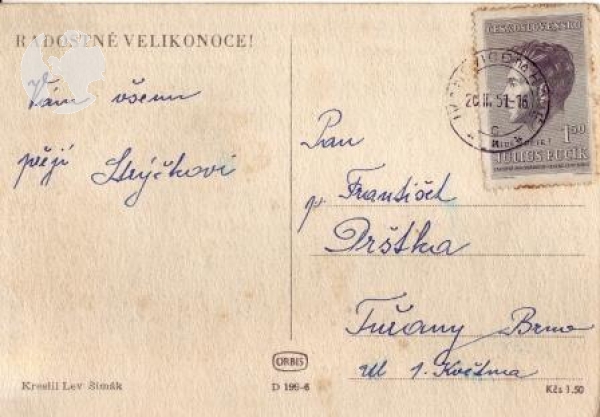 RADOSTNÉ VELIKONOCE!
Vám všem
přejí Strýčkovi
Kreslil Lev Šimák
ORBIS
D 199-6
ČESKOSLOVENSKO
1.50
JULIUS FUČÍK
Pan
p. František
Prštka
Tuřany Brno
Ul 1. Května
Kčs 1.50